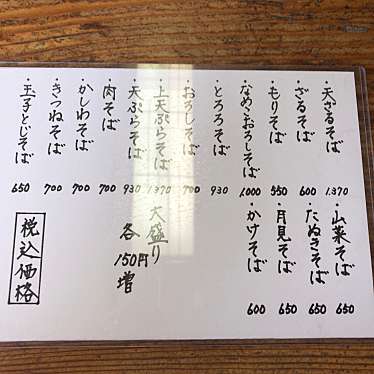 ・天ざるそば 1,370
・ざるそば 600
・もりそば 550
・なめこおろしそば 1,000
・とろろそば 930
・おろしそば 700
・上天ぷらそば 1,370
・天ぷらそば 930
・肉そば 700
・かしわそば 700
・きつねそば 700
・玉子とじそば 650
・山菜そば 650
・たぬきそば 650
・月見そば 650
・かけそば 600
大盛り
各150円増
税込価格